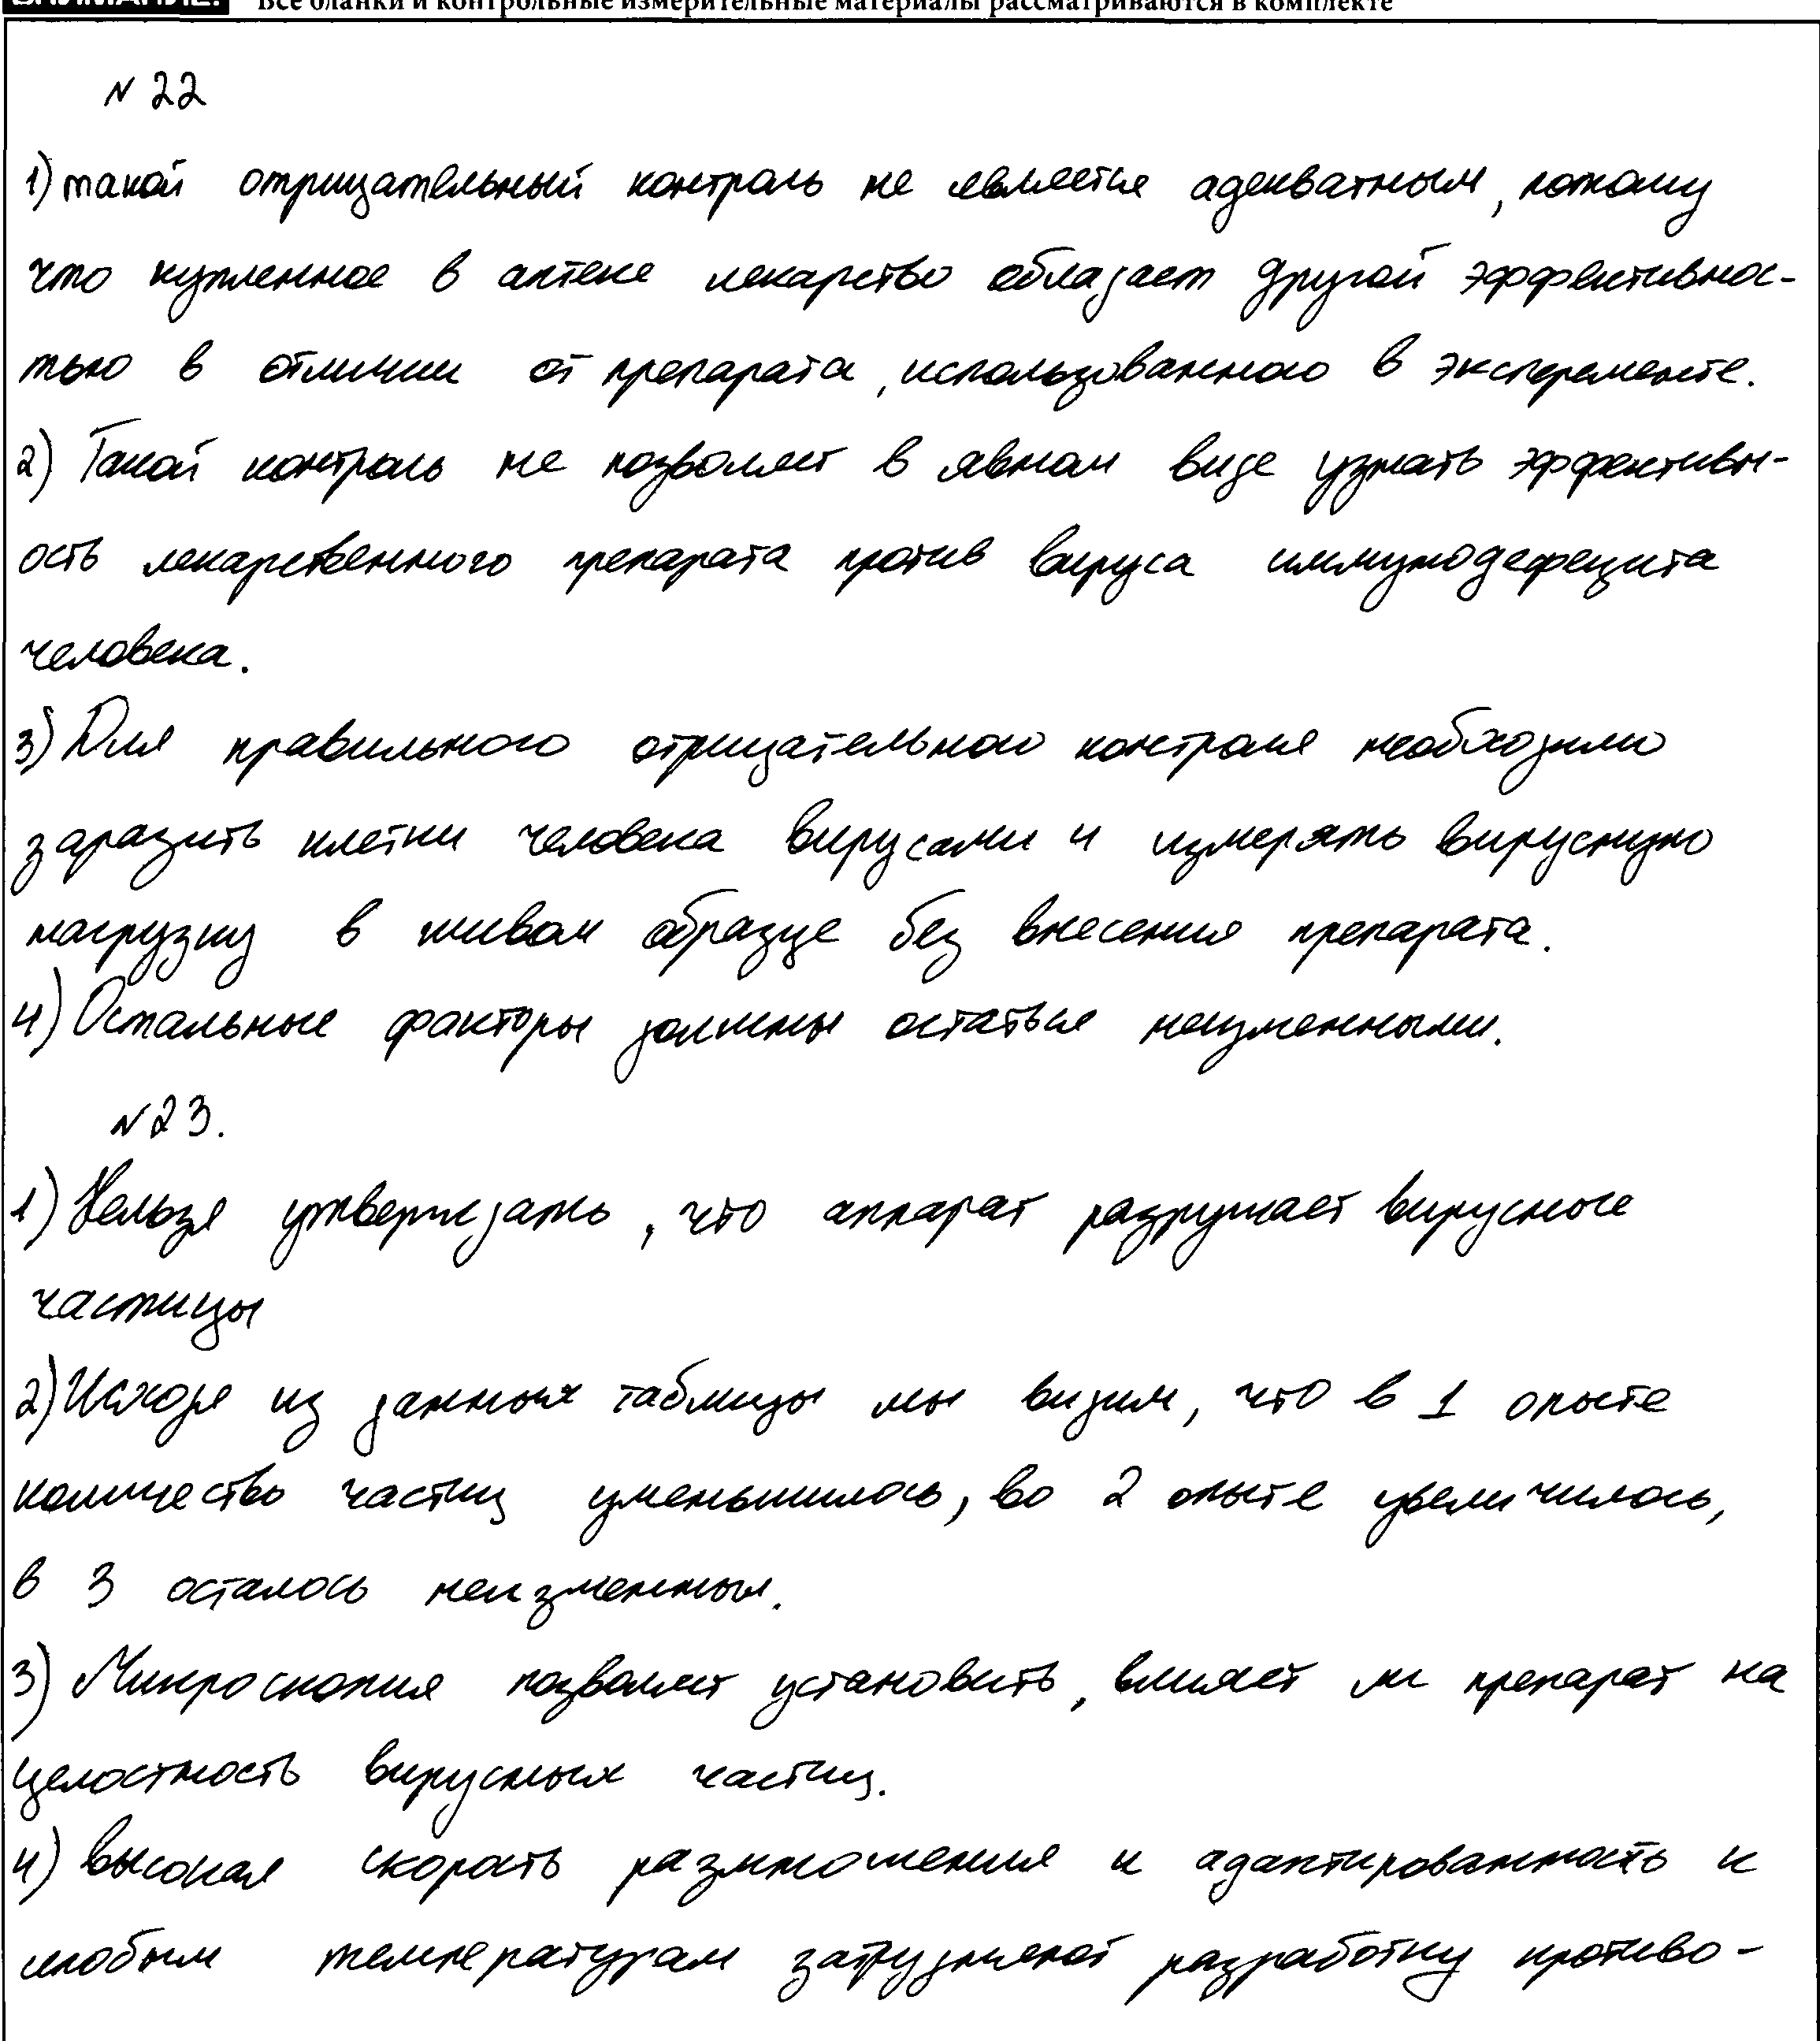 ВНИМАНИЕ! Все бланки и контрольные измерительные материалы рассматриваются в комплекте
№ 22
1) такой отрицательный контроль не является адекватным, потому
что купленное в аптеке лекарство обладает другой эффективнос-
тью в отличии от препарата, использованного в эксперементе.
2) Такой контроль не позволяет в явном виде узнать эффективн-
ость лекарственного препарата против вируса иммунодефецита
человека.
3) Для правильного отрицательного контроля необходимо
заразить клетки человека вирусами и измерять вирусную
нагрузку в живом образце без внесения препарата.
4) Остальные факторы должны остаться неизменными.
№23.
1) Нельзя утверждать, что аппарат разрушает вирусные
частицы
2) Исходя из данных таблицы мы видим, что в 1 опыте
количество частиц уменьшилось, во 2 опыте увеличилось,
в 3 осталось неизменным.
3) Микроскопия позволяет установить, влияет ли препарат на
целостность вирусных частиц.
4) высокая скорость размножения и адаптированность к
любым температурам затрудняют разработку противо-